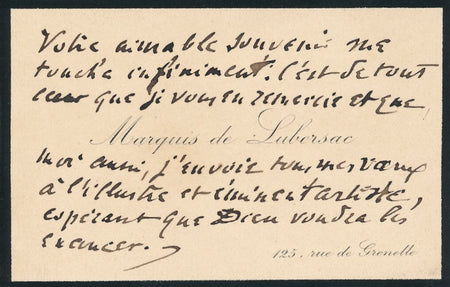 Votre aimable souvenir me
touche infiniment. C'est de tout
cœur que je vous en remercie et que
Marquis de Lubersac
moi aussi, j'envoie tous mes vœux
à l'illustre et éminent artiste,
espérant que Dieu voudra les
exaucer.
125, rue de Grenelle